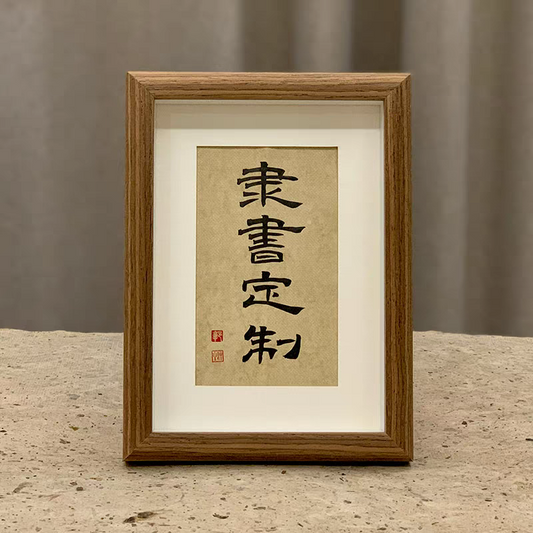 隶書定制